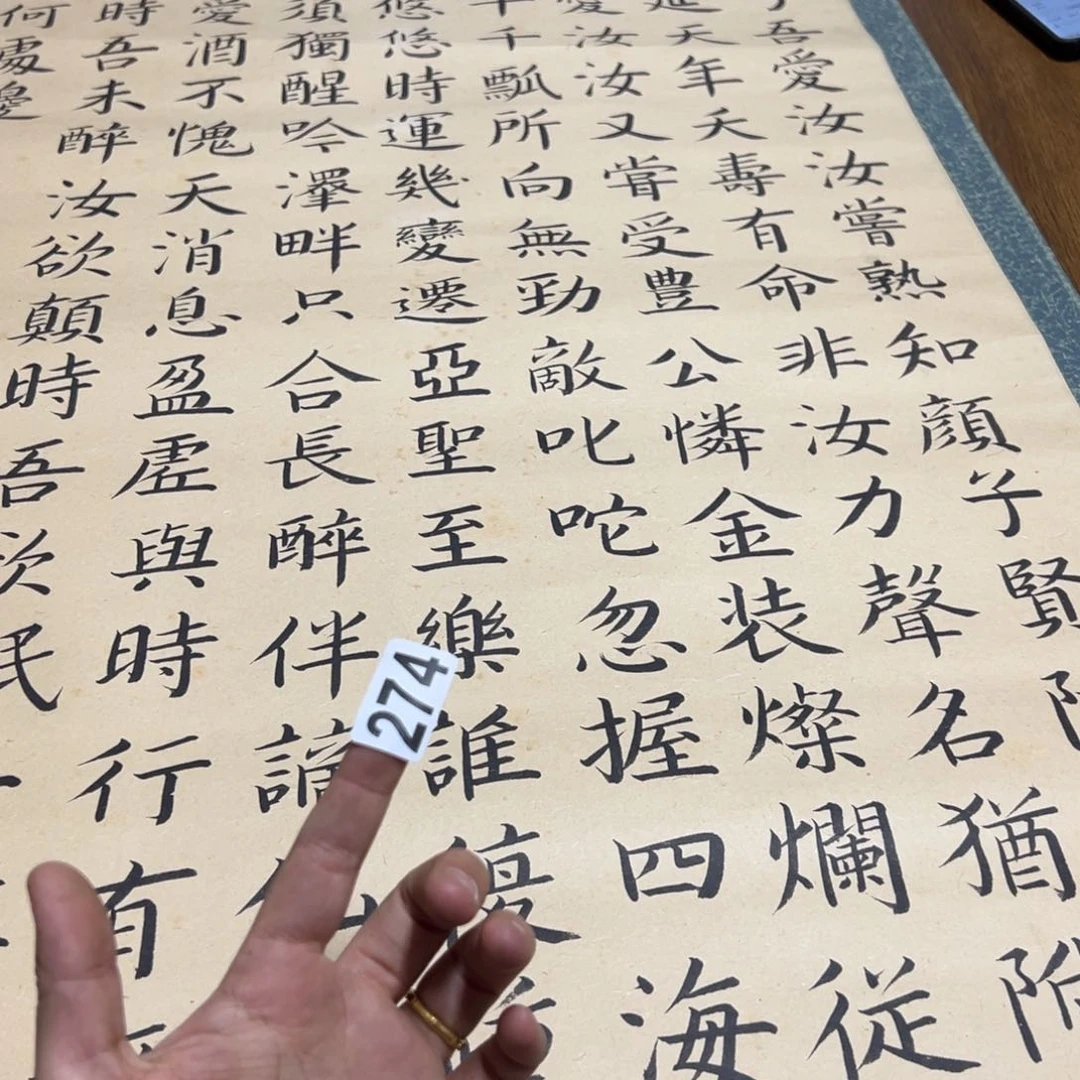 吾愛汝汝嘗熟知顔子賢
延天年夭壽有命非汝力聲名猶附
愛汝汝又嘗受豊公憐金装燦爛従
千千瓢所向無勁敵叱咤忽握四海
悠悠時運幾變遷亞聖至樂誰復
須獨醒吟澤畔只合長醉伴謫仙
愛酒不愧天消息盈虚與時行有
時吾未醉汝欲顛時吾欲眠
何處
274